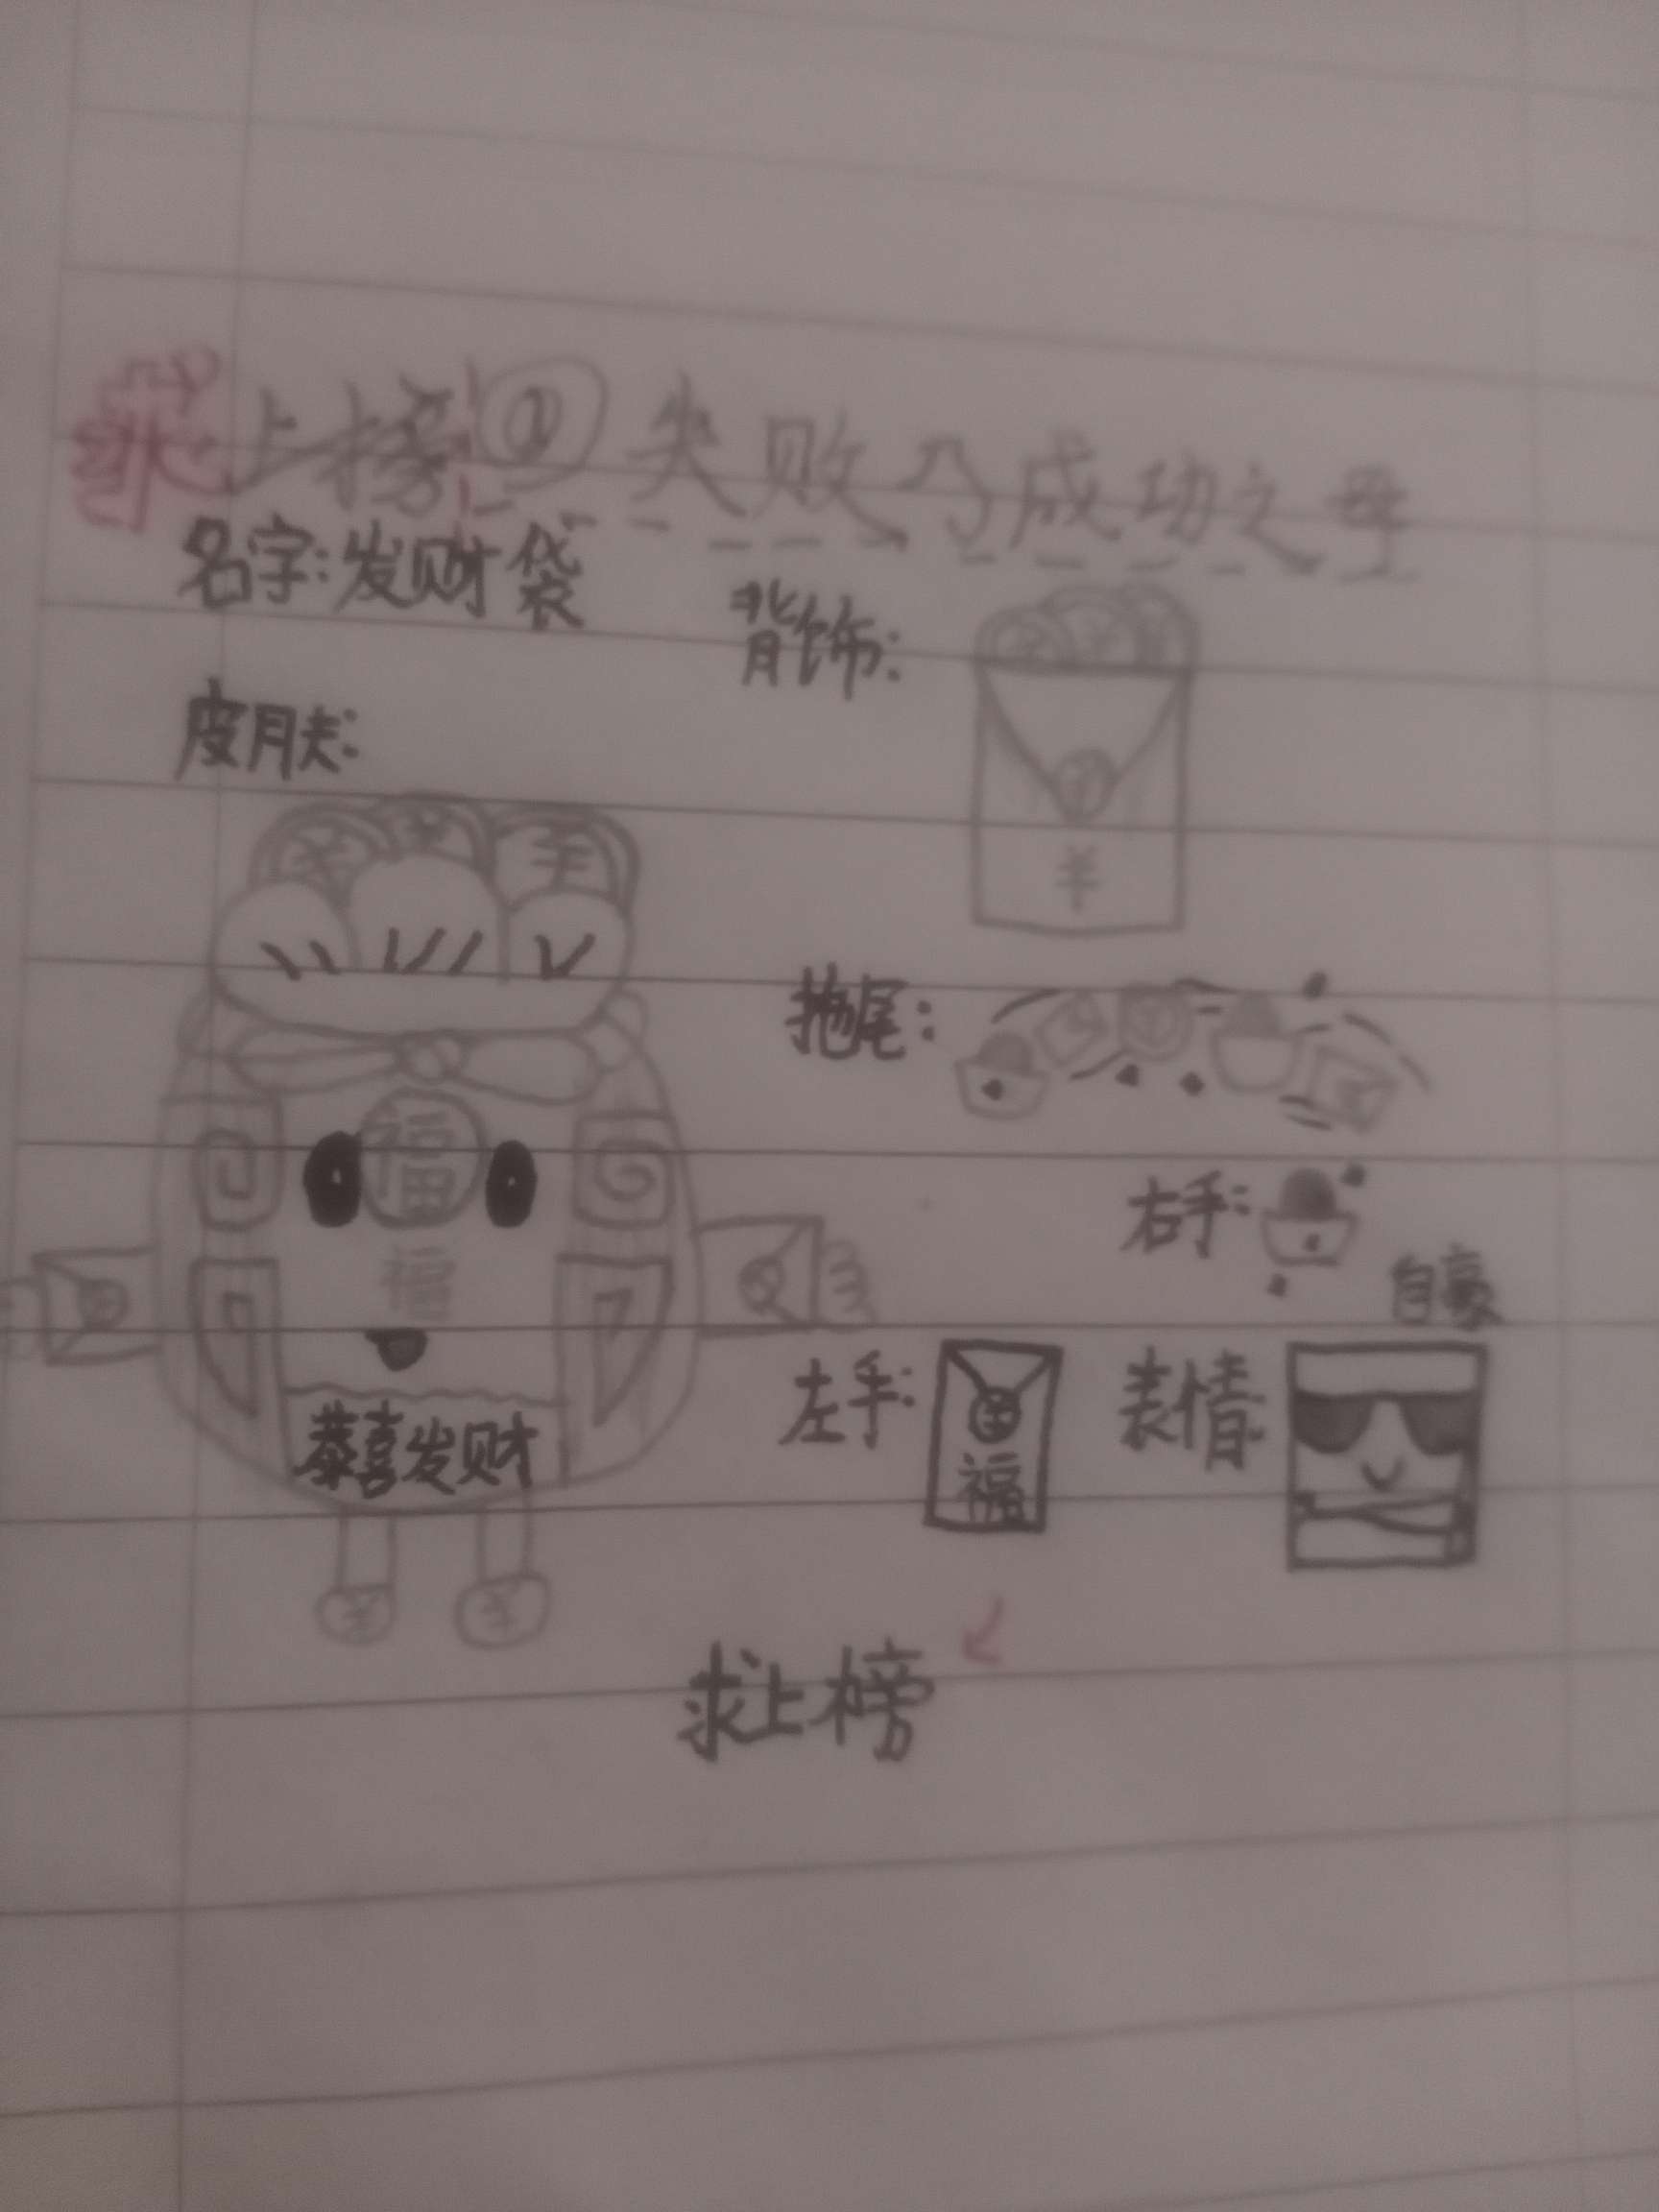 求上榜! ① 失败乃成功之母
名字:发财袋
背饰:
皮肤:
¥ ¥ ¥
¥
拖尾:
福
右手:
福
自豪
左手:
福
表情
恭喜发财
¥ ¥
求上榜